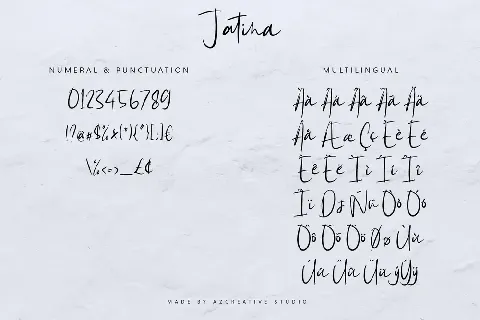 Jatina
NUMERAL & PUNCTUATION
0123456789
!?@#$%&(*){°}[.]€
\%<=>_£¢
MULTILINGUAL
Àà Áá Ââ Ãã Ää
Åå Ææ Çç Èè Éé
Êê Ëë Ìì Íí Îî
Ïï Ðð Ññ Òò Óó
Ôô Õõ Öö Øø Ùù
Úú Ûû Üü ýÿÿ
MADE BY AZCREATIVE STUDIO